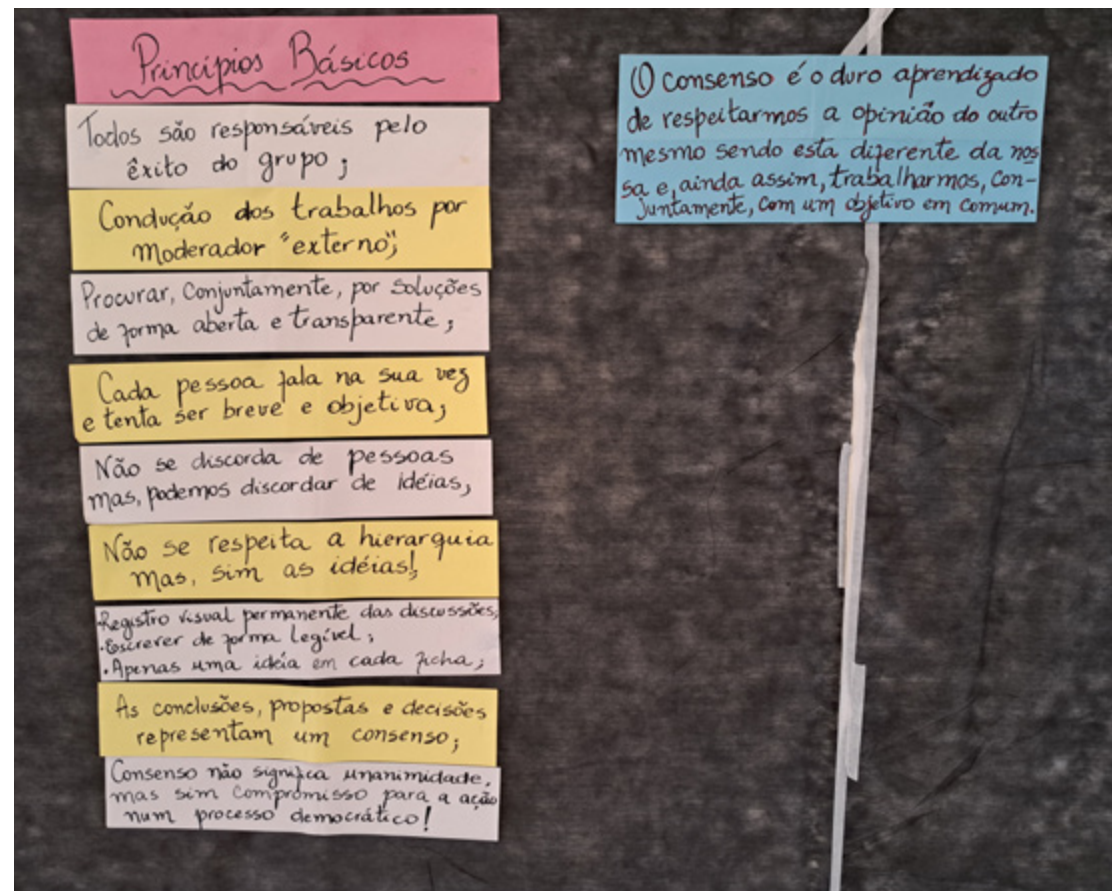 Princípios Básicos
Todos são responsáveis pelo
êxito do grupo;
Condução dos trabalhos por
moderador "externo";
Procurar, conjuntamente, por soluções
de forma aberta e transparente;
Cada pessoa fala na sua vez
e tenta ser breve e objetiva;
Não se discorda de pessoas
mas, podemos discordar de idéias;
Não se respeita a hierarquia
mas, sim as idéias!;
•Registro visual permanente das discussões;
•Escrever de forma legível;
•Apenas uma idéia em cada ficha;
As conclusões, propostas e decisões
representam um consenso;
Consenso não significa unanimidade,
mas sim compromisso para a ação
num processo democrático!
O consenso é o duro aprendizado
de respeitarmos a opinião do outro
mesmo sendo esta diferente da nos
sa e, ainda assim, trabalharmos, con-
juntamente, com um objetivo em comum.